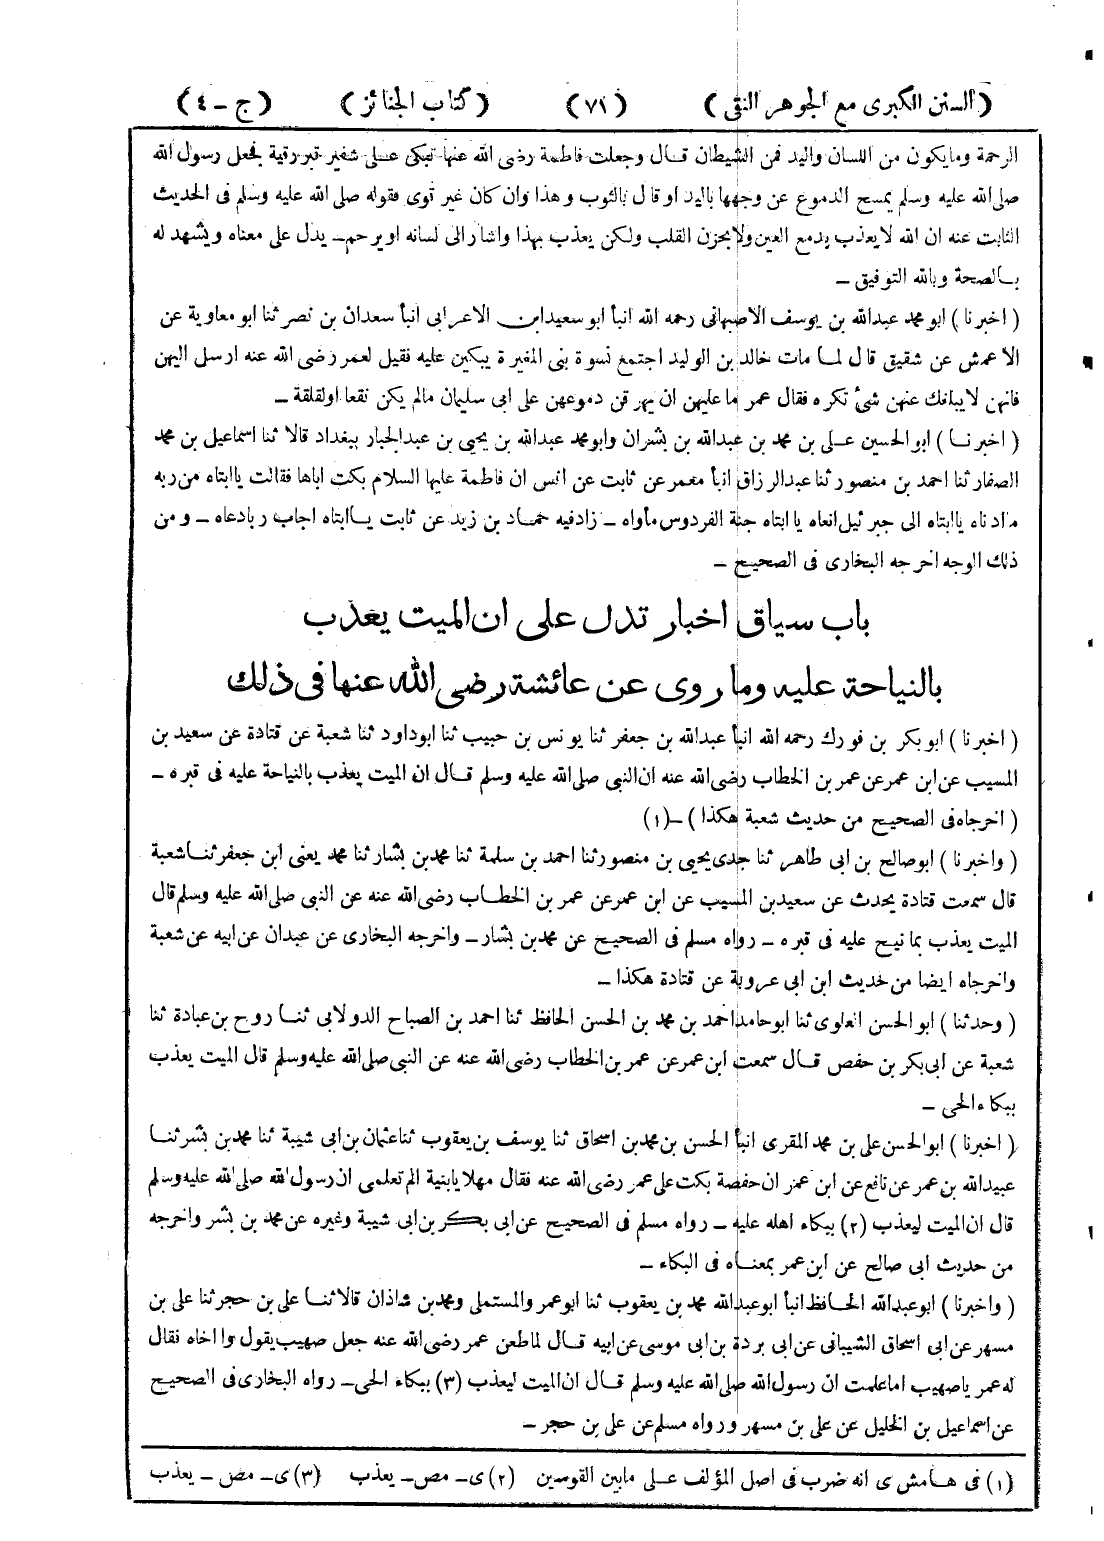 (السنن الكبرى مع الجوهر النقى) (٧١) (كتاب الجنائز) (ج - ٤)
الرحمة ومايكون من اللسان واليد فمن الشيطان قال وجعلت فاطمة رضى الله عنها تبكى على شفير قبر رقية فجعل رسول الله
صلى الله عليه وسلم يمسح الدموع عن وجهها باليد او قال بالثوب وهذا وان كان غير قوى فقوله صلى الله عليه وسلم فى الحديث
الثابت عنه ان الله لا يعذب بدمع العين ولا بحزن القلب ولكن يعذب بهذا واشار الى لسانه او يرحم ـ يدل على معناه ويشهد له
بالصحة وبالله التوفيق ـ
( اخبرنا ) ابو محمد عبدالله بن يوسف الاصبهانى رحمه الله انبأ ابو سعيد ابن الاعرابى انبأ سعدان بن نصر ثنا ابو معاوية عن
الاعمش عن شقيق قال لما مات خالد بن الوليد اجتمع نسوة بنى المغيرة يبكين عليه فقيل لعمر رضى الله عنه ارسل اليهن
فانهن لا يبلغك عنهن شئ تكره فقال عمر ما عليهن ان يهرقن دموعهن على ابى سليمان مالم يكن نقعا اولقلقة ـ
( اخبرنا ) ابو الحسين على بن محمد بن عبدالله بن بشران وابو محمد عبدالله بن يحيى بن عبدالجبار ببغداد قالا ثنا اسماعيل بن محمد
الصفار ثنا احمد بن منصور ثنا عبدالرزاق انبأ معمر عن ثابت عن انس ان فاطمة عليها السلام بكت اباها فقالت يا ابتاه من ربه
ما ادناه يا ابتاه الى جبرئيل انعاه يا ابتاه جنة الفردوس مأواه ـ زاد فيه حماد بن زيد عن ثابت يا ابتاه اجاب ربا دعاه ـ ومن
ذلك الوجه اخرجه البخارى فى الصحيح ـ
باب سياق اخبار تدل على ان الميت يعذب
بالنياحة عليه وما روى عن عائشة رضى الله عنها فى ذلك
( اخبرنا ) ابو بكر بن فورك رحمه الله انبأ عبدالله بن جعفر ثنا يونس بن حبيب ثنا ابوداود ثنا شعبة عن قتادة عن سعيد بن
المسيب عن ابن عمر عن عمر بن الخطاب رضى الله عنه ان النبى صلى الله عليه وسلم قال ان الميت يعذب بالنياحة عليه فى قبره ـ
( اخرجاه فى الصحيح من حديث شعبة هكذا ) ـ (١)
( واخبرنا ) ابو صالح بن ابى طاهر ثنا جدى يحيى بن منصور ثنا احمد بن سلمة ثنا محمد بن بشار ثنا محمد يعنى ابن جعفر ثنا شعبة
قال سمعت قتادة يحدث عن سعيد بن المسيب عن ابن عمر عن عمر بن الخطاب رضى الله عنه عن النبى صلى الله عليه وسلم قال
الميت يعذب بما نيح عليه فى قبره ـ رواه مسلم فى الصحيح عن محمد بن بشار ـ واخرجه البخارى عن عبدان عن ابيه عن شعبة
واخرجاه ايضا من حديث ابن ابى عروبة عن قتادة هكذا ـ
( وحدثنا ) ابو الحسن العلوى ثنا ابو حامد احمد بن محمد بن الحسن الحافظ ثنا احمد بن الصباح الدولابى ثنا روح بن عبادة ثنا
شعبة عن ابى بكر بن حفص قال سمعت ابن عمر عن عمر بن الخطاب رضى الله عنه عن النبى صلى الله عليه وسلم قال الميت يعذب
ببكاء الحى ـ
( اخبرنا ) ابو الحسن على بن محمد المقرى انبأ الحسن بن محمد بن اسحاق ثنا يوسف بن يعقوب ثنا عثمان بن ابى شيبة ثنا محمد بن بشر ثنا
عبيدالله بن عمر عن نافع عن ابن عمر ان حفصة بكت على عمر رضى الله عنه فقال مهلا يا بنية الم تعلمى ان رسول الله صلى الله عليه وسلم
قال ان الميت ليعذب (٢) ببكاء اهله عليه ـ رواه مسلم فى الصحيح عن ابى بكر بن ابى شيبة وغيره عن محمد بن بشر واخرجه
من حديث ابى صالح عن ابن عمر بمعناه فى البكاء ـ
( واخبرنا ) ابو عبدالله الحافظ انبأ ابو عبدالله محمد بن يعقوب ثنا ابو عمر والمستملى ومحمد بن شاذان قالا ثنا على بن حجر ثنا على بن
مسهر عن ابى اسحاق الشيبانى عن ابى بردة بن ابى موسى عن ابيه قال لما طعن عمر رضى الله عنه جعل صهيب يقول وا اخاه فقال
له عمر يا صهيب اما علمت ان رسول الله صلى الله عليه وسلم قال ان الميت ليعذب (٣) ببكاء الحى ـ رواه البخارى فى الصحيح
عن اسماعيل بن الخليل عن على بن مسهر ورواه مسلم عن على بن حجر ـ
(١) فى هامش ى انه ضرب فى اصل المؤلف على ما بين القوسين (٢) ى ـ مص ـ يعذب (٣) ى ـ مص ـ يعذب